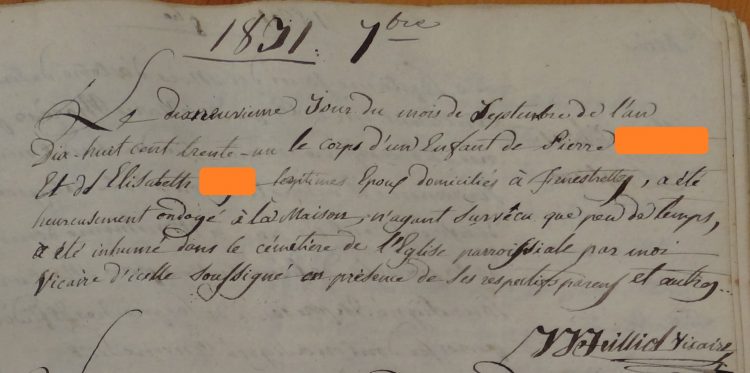 1831. 7bre
Le dixneuvieme Jour du mois de Septembre de l'an
Dix-huit cent trente-un le corps d'un Enfant de Pierre
Et d'Elisabeth legitimes Epoux domiciliés à Fenestrelles, a été
heureusement ondoyé à la Maison, n'ayant survêcu que peu de temps,
a été inhumé dans le cémétiere de l'Eglise parroissiale par moi
Vicaire d'icelle soussigné en présence de ses respectifs parens et autres
Vicaire